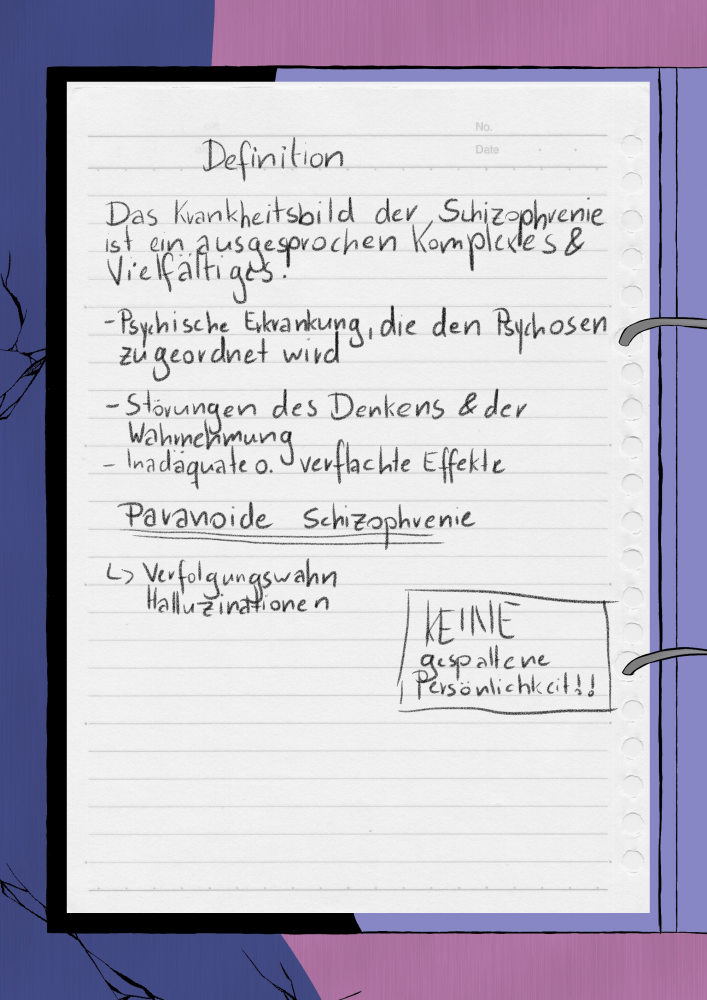 No.
Date
Definition
Das Krankheitsbild der Schizophrenie
ist ein ausgesprochen Komplexes &
Vielfältiges.
- Psychische Erkrankung, die den Psychosen
zugeordnet wird
- Störungen des Denkens & der
Wahrnehmung
- Inadäquate o. verflachte Effekte
Paranoide Schizophrenie
↳ Verfolgungswahn
Halluzinationen
KEINE
gespaltene
Persönlichkeit!!